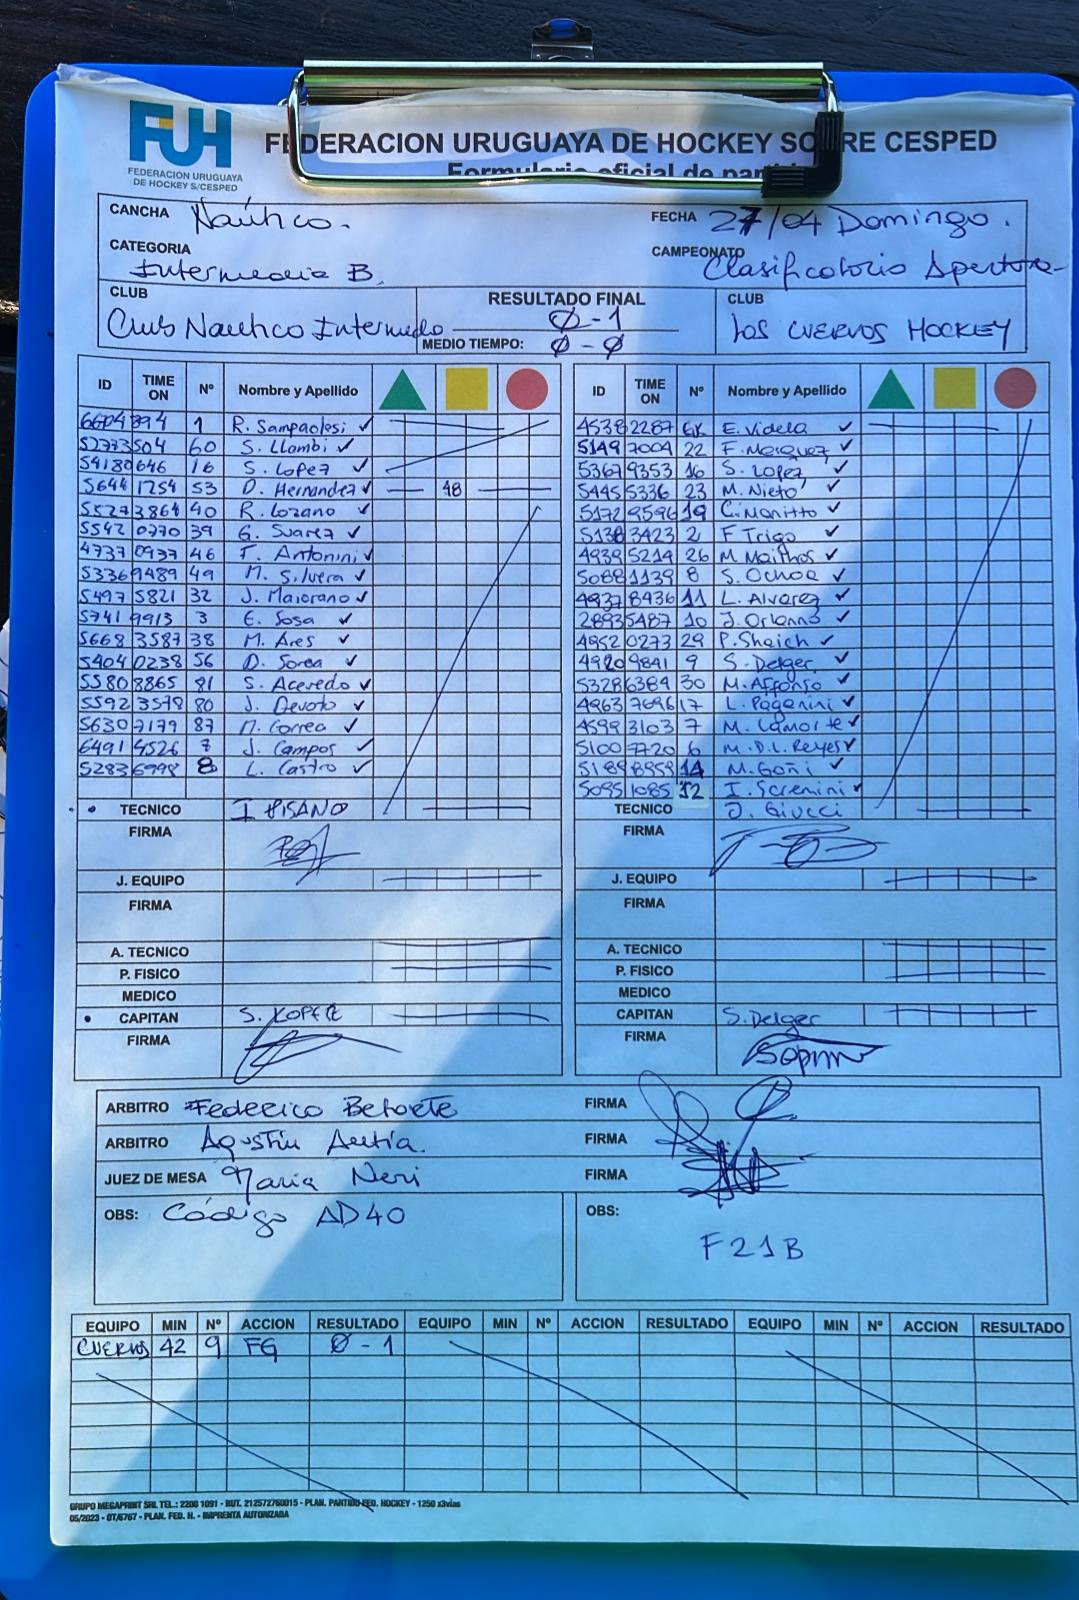 FUH
FEDERACION URUGUAYA
DE HOCKEY S/CESPED
FEDERACION URUGUAYA DE HOCKEY SOBRE CESPED
Formulario oficial de partido
CANCHA Naútico.
FECHA 27/04 Domingo.
CATEGORIA Intermedia B.
CAMPEONATO Clasificatorio Apertura
CLUB Club Nautico Intermedio
RESULTADO FINAL 0-1
MEDIO TIEMPO: 0-0
CLUB LOS CUERVOS HOCKEY
ID TIME ON Nº Nombre y Apellido
1 R. Sampaolesi ✓
52773504 60 S. Llambi ✓
54180646 16 S. Lopez ✓
56441254 53 D. Hernandez ✓ 48
55273864 40 R. Lozano ✓
55420270 39 G. Suarez ✓
47370937 46 F. Antonini ✓
53369489 49 M. Silvera ✓
54975821 32 J. Maiorano ✓
57419913 3 E. Sosa ✓
56683587 38 M. Ares ✓
54040238 56 D. Sorea ✓
55808865 81 S. Acevedo ✓
55923578 80 J. Devoto ✓
56307179 87 M. Correa ✓
64914526 7 J. Campos ✓
52836998 8 L. Castro ✓
TECNICO I PISANO
FIRMA
J. EQUIPO
FIRMA
A. TECNICO
P. FISICO
MEDICO
CAPITAN S. LOPEZ
FIRMA
ID TIME ON Nº Nombre y Apellido
45382287 GK E. Videla ✓
51497004 22 F. Marquez ✓
53679353 16 S. Lopez ✓
54455336 23 M. Nieto ✓
51729596 19 C. Manitto ✓
51383423 2 F Trigo ✓
49395214 26 M. Maithos ✓
50881139 8 S. Ochoa ✓
49378936 11 L. Alvarez ✓
28935487 10 J. Orlanno ✓
49520273 29 P. Shaich ✓
49209841 9 S. Delger ✓
53286384 30 M. Affonso ✓
49637696 17 L. Paganini ✓
45993103 7 M. Lamorte ✓
51007720 6 M. D. L. Reyes ✓
51898959 14 M. Goñi ✓
50951085 12 I. Scremini ✓
TECNICO J. Giucci
FIRMA
J. EQUIPO
FIRMA
A. TECNICO
P. FISICO
MEDICO
CAPITAN S. Delger
FIRMA
ARBITRO Federico Beforte FIRMA
ARBITRO Agustín Antía. FIRMA
JUEZ DE MESA Maria Neri FIRMA
OBS: Código AD40
OBS: F21B
EQUIPO MIN Nº ACCION RESULTADO EQUIPO MIN Nº ACCION RESULTADO EQUIPO MIN Nº ACCION RESULTADO
CUERVOS 42 9 FG 0-1
GRUPO MEGAPRINT SRL TEL.: 2208 1091 - RUT. 212572760015 - PLAN. PARTIDO FED. HOCKEY - 1250 x3vias
05/2023 - OT/6767 - PLAN. FED. H. - IMPRENTA AUTORIZADA